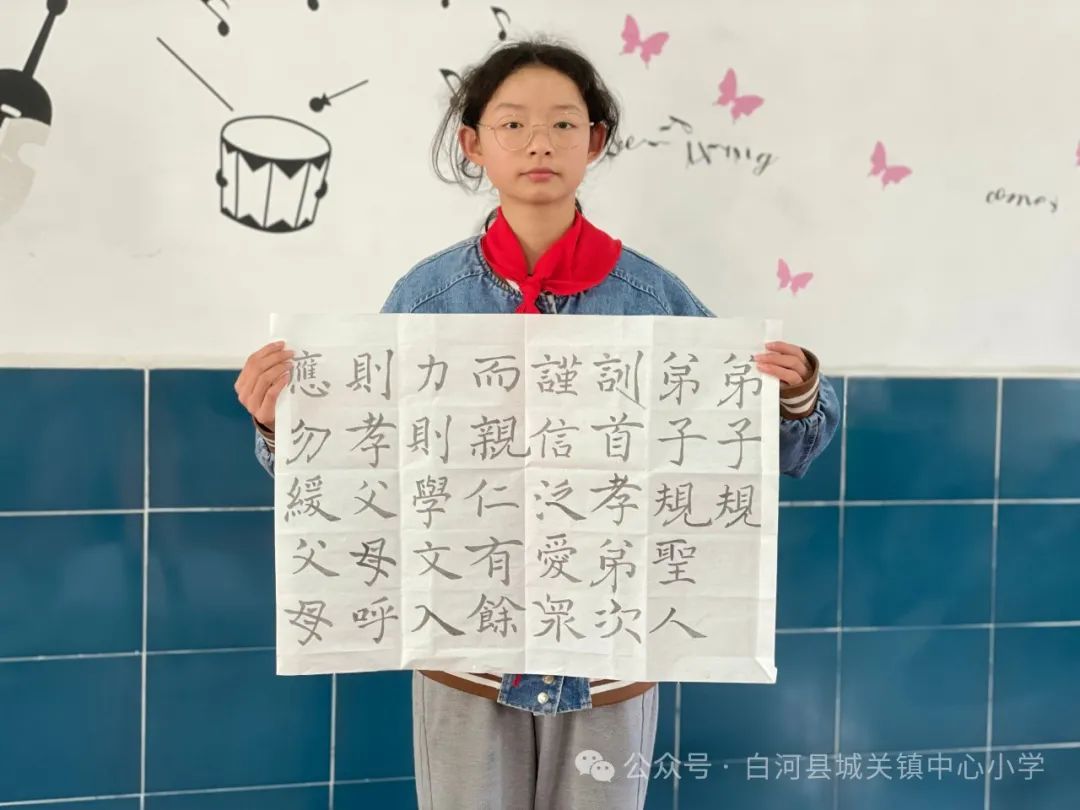 弟子規
弟子規聖人
訓首孝弟次
謹信泛愛眾
而親仁有餘
力則學文入
則孝父母呼
應勿緩父母
comes
公众号·白河县城关镇中心小学